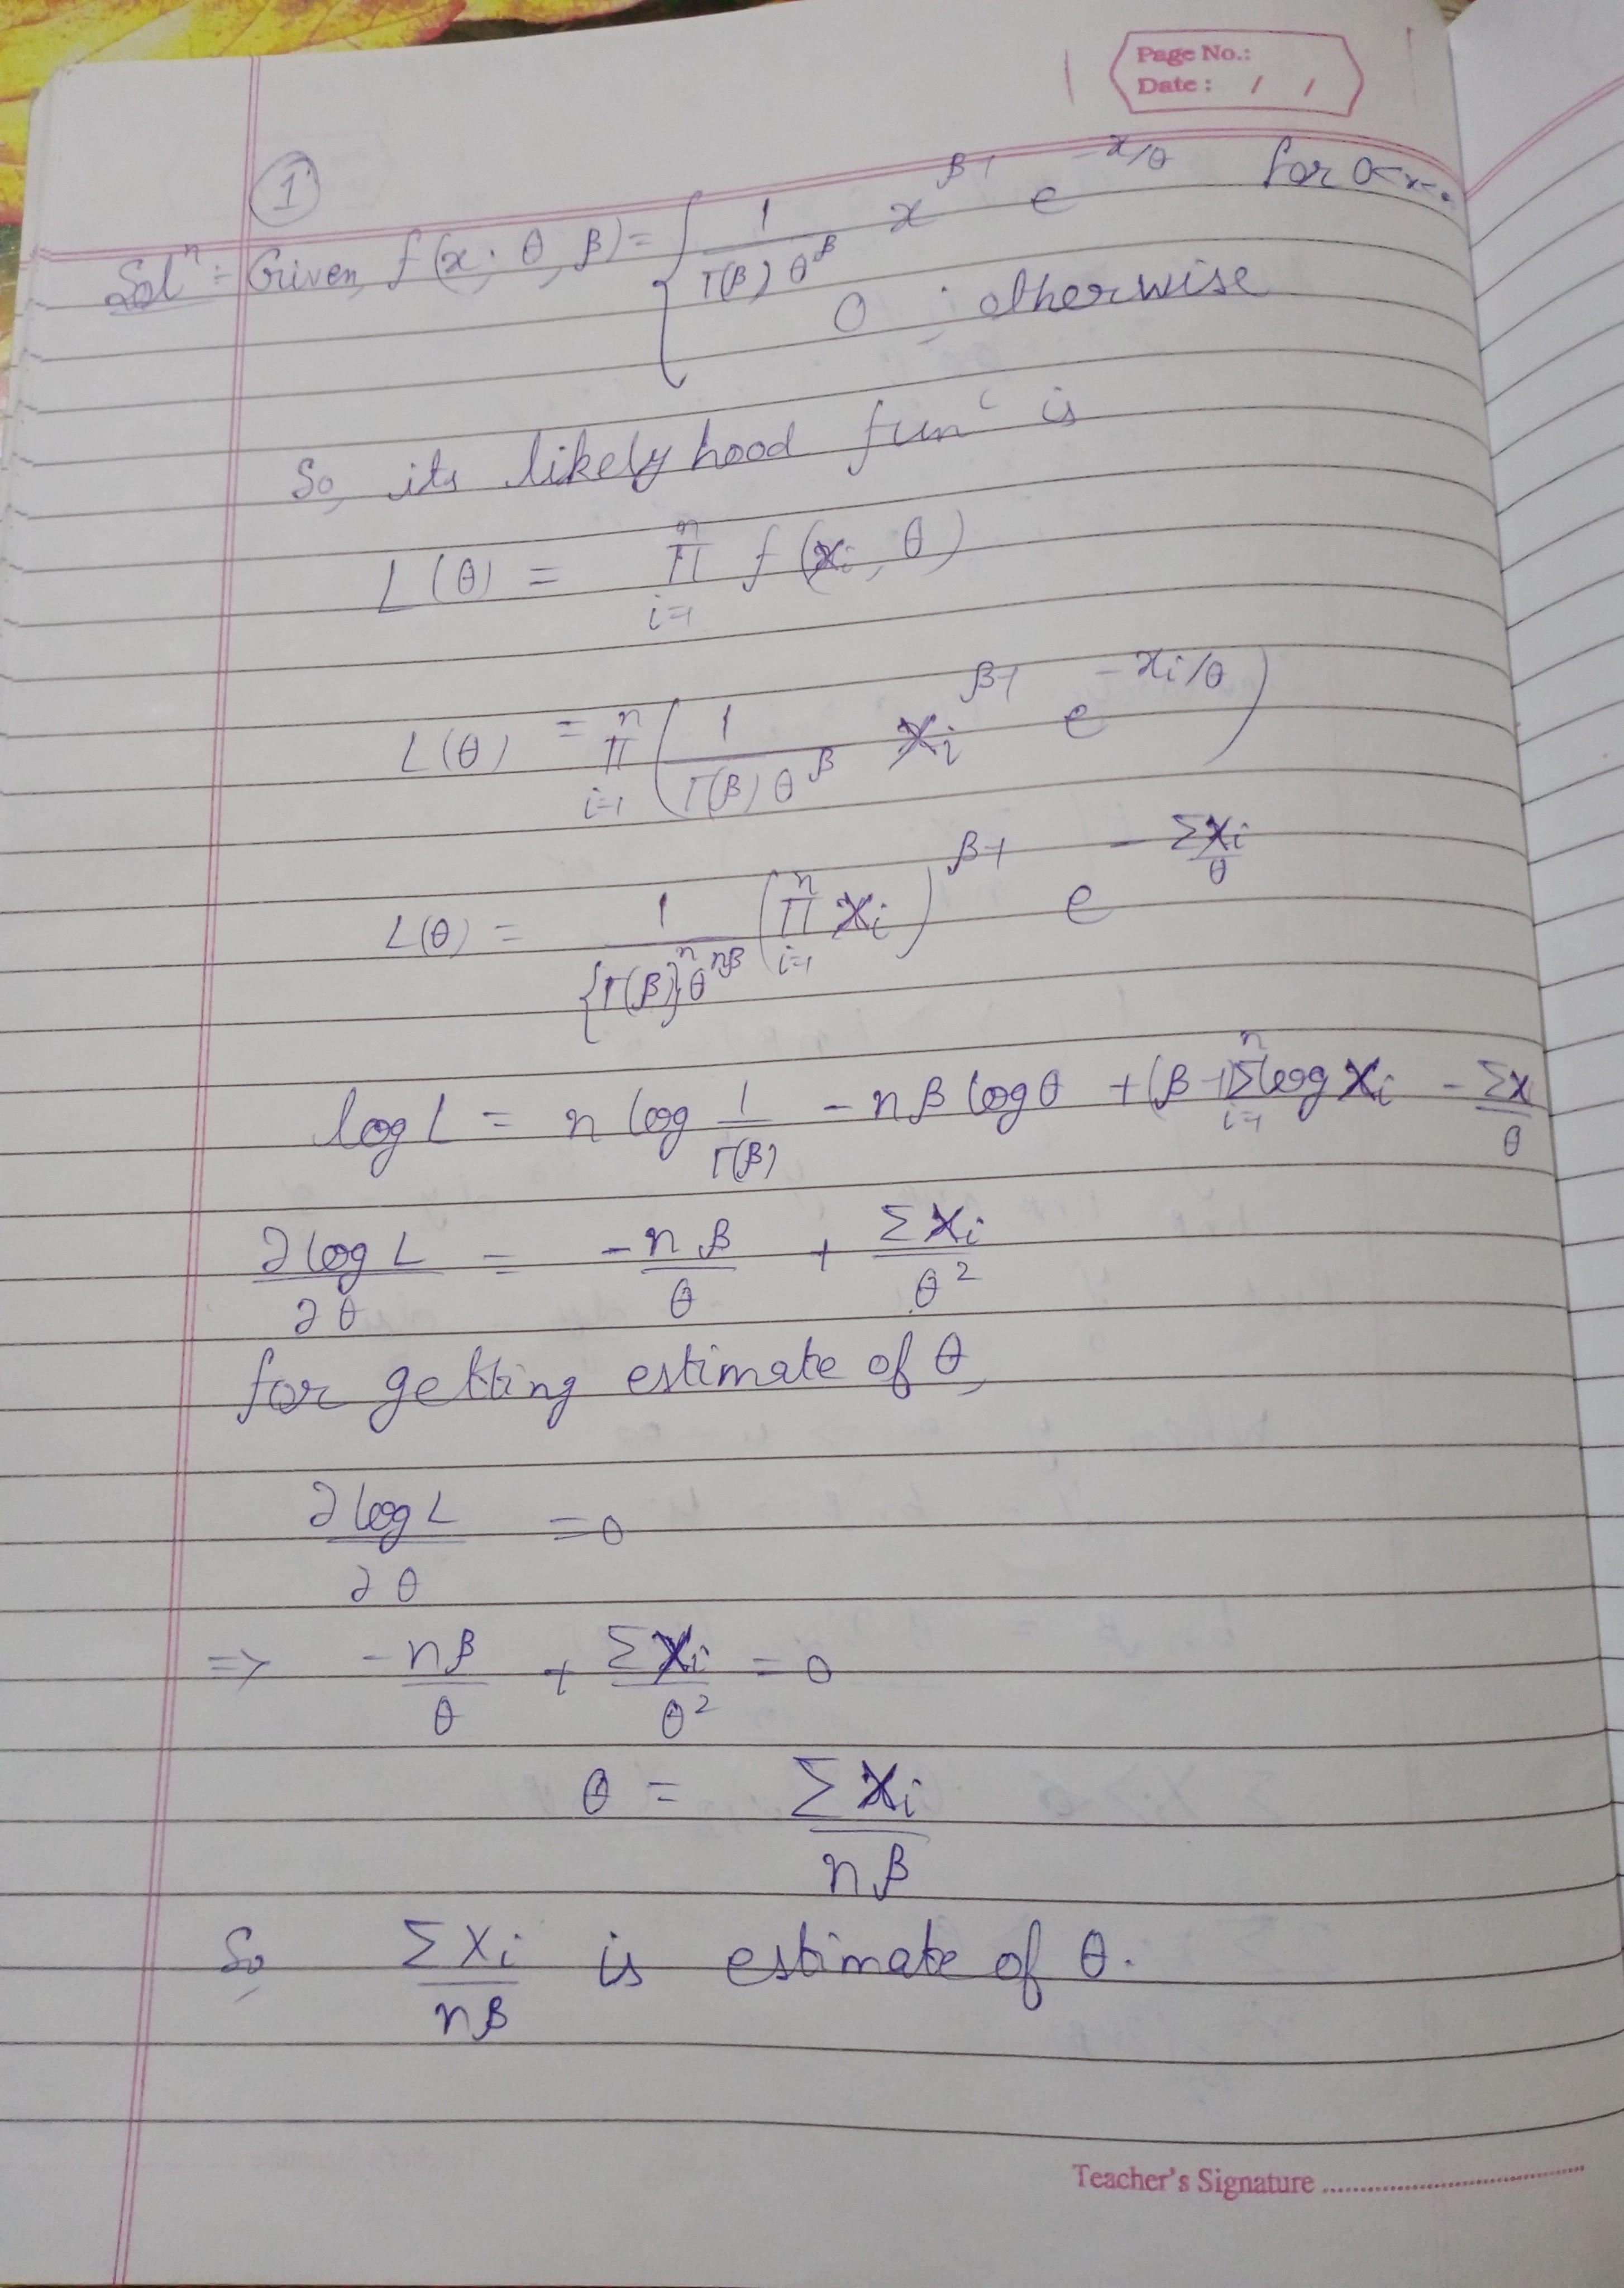 Page No.:
Date : / /
①
Solⁿ := Given, f(x; θ, β) = { 1/(Γ(β) θ^β) x^(β-1) e^(-x/θ) for 0<x<
0 ; otherwise
So, its likelyhood funᶜ is
L(θ) = ∏_{i=1}^{n} f(xi, θ)
L(θ) = ∏_{i=1}^{n} (1/(Γ(β) θ^β) Xi^(β-1) e^(-xi/θ))
L(θ) = 1/({Γ(β)}^n θ^(nβ)) (∏_{i=1}^{n} Xi)^(β-1) e^(-ΣXi/θ)
log L = n log 1/Γ(β) - nβ log θ + (β-1) Σ_{i=1}^{n} log Xi - ΣX/θ
∂ log L/∂θ = -nβ/θ + ΣXi/θ²
for getting estimate of θ,
∂ log L/∂θ = 0
=> -nβ/θ + ΣXi/θ² = 0
θ = ΣXi/nβ
So, ΣXi/nβ is estimate of θ.
Teacher's Signature ..........